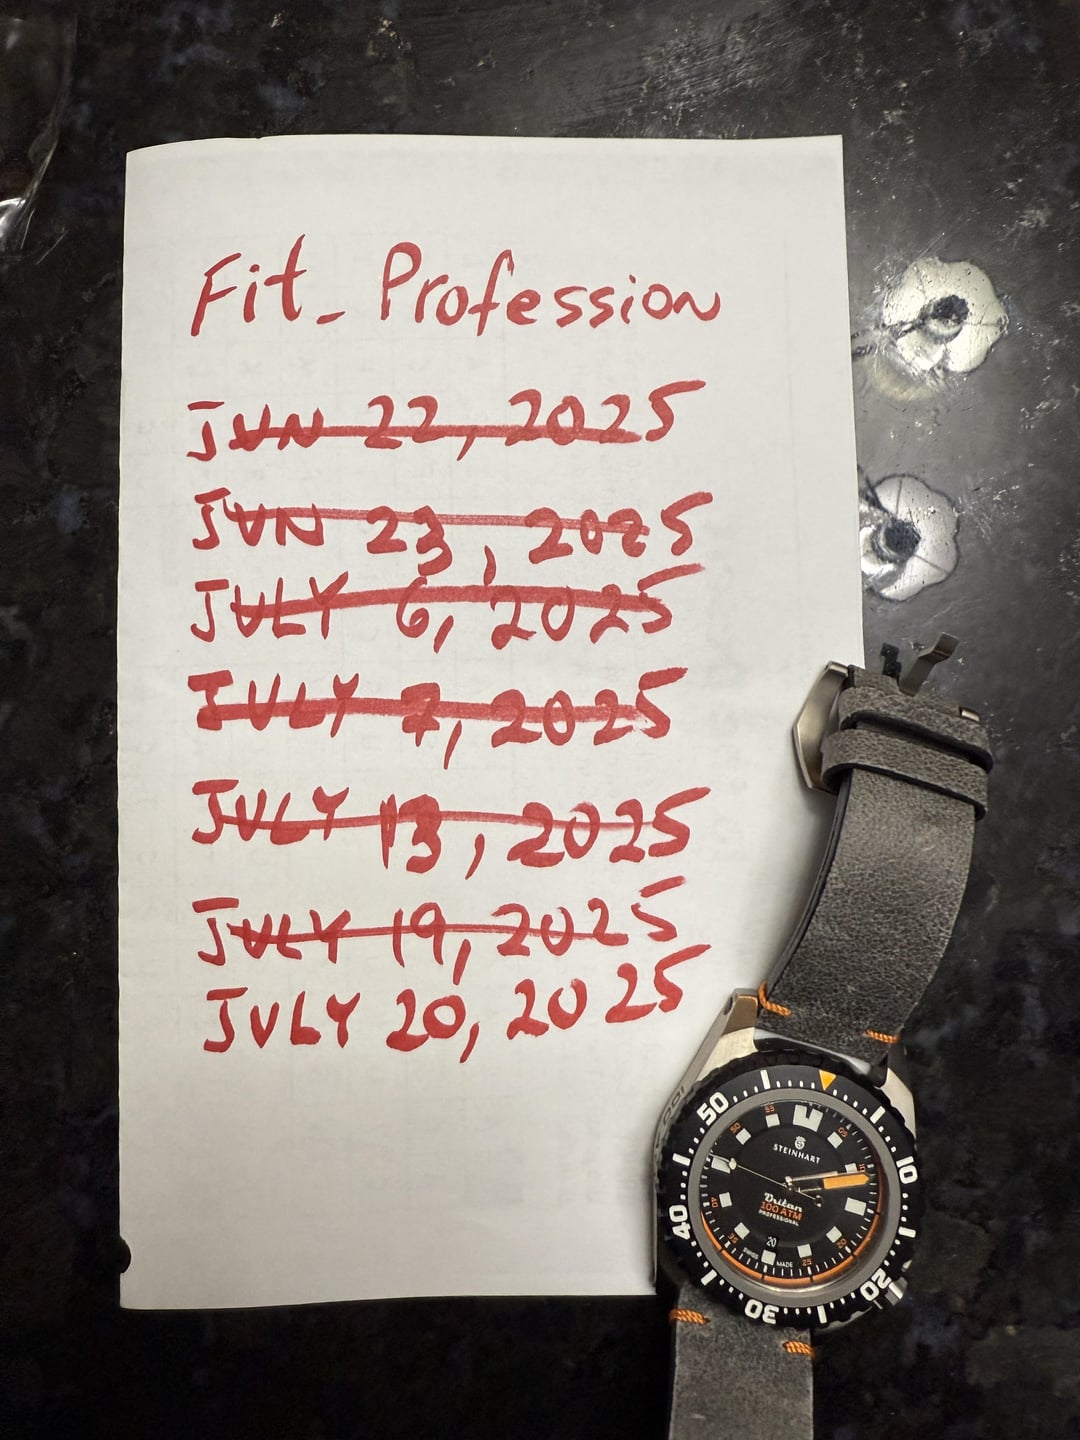 Fit_Profession
JUN 22, 2025
JUN 23, 2025
JULY 6, 2025
JULY 7, 2025
JULY 13, 2025
JULY 19, 2025
JULY 20, 2025
50
10
20
30
40
55
05
10
20
25
35
40
50
STEINHART
Triton
100 ATM
PROFESSIONAL
20
SWISS MADE